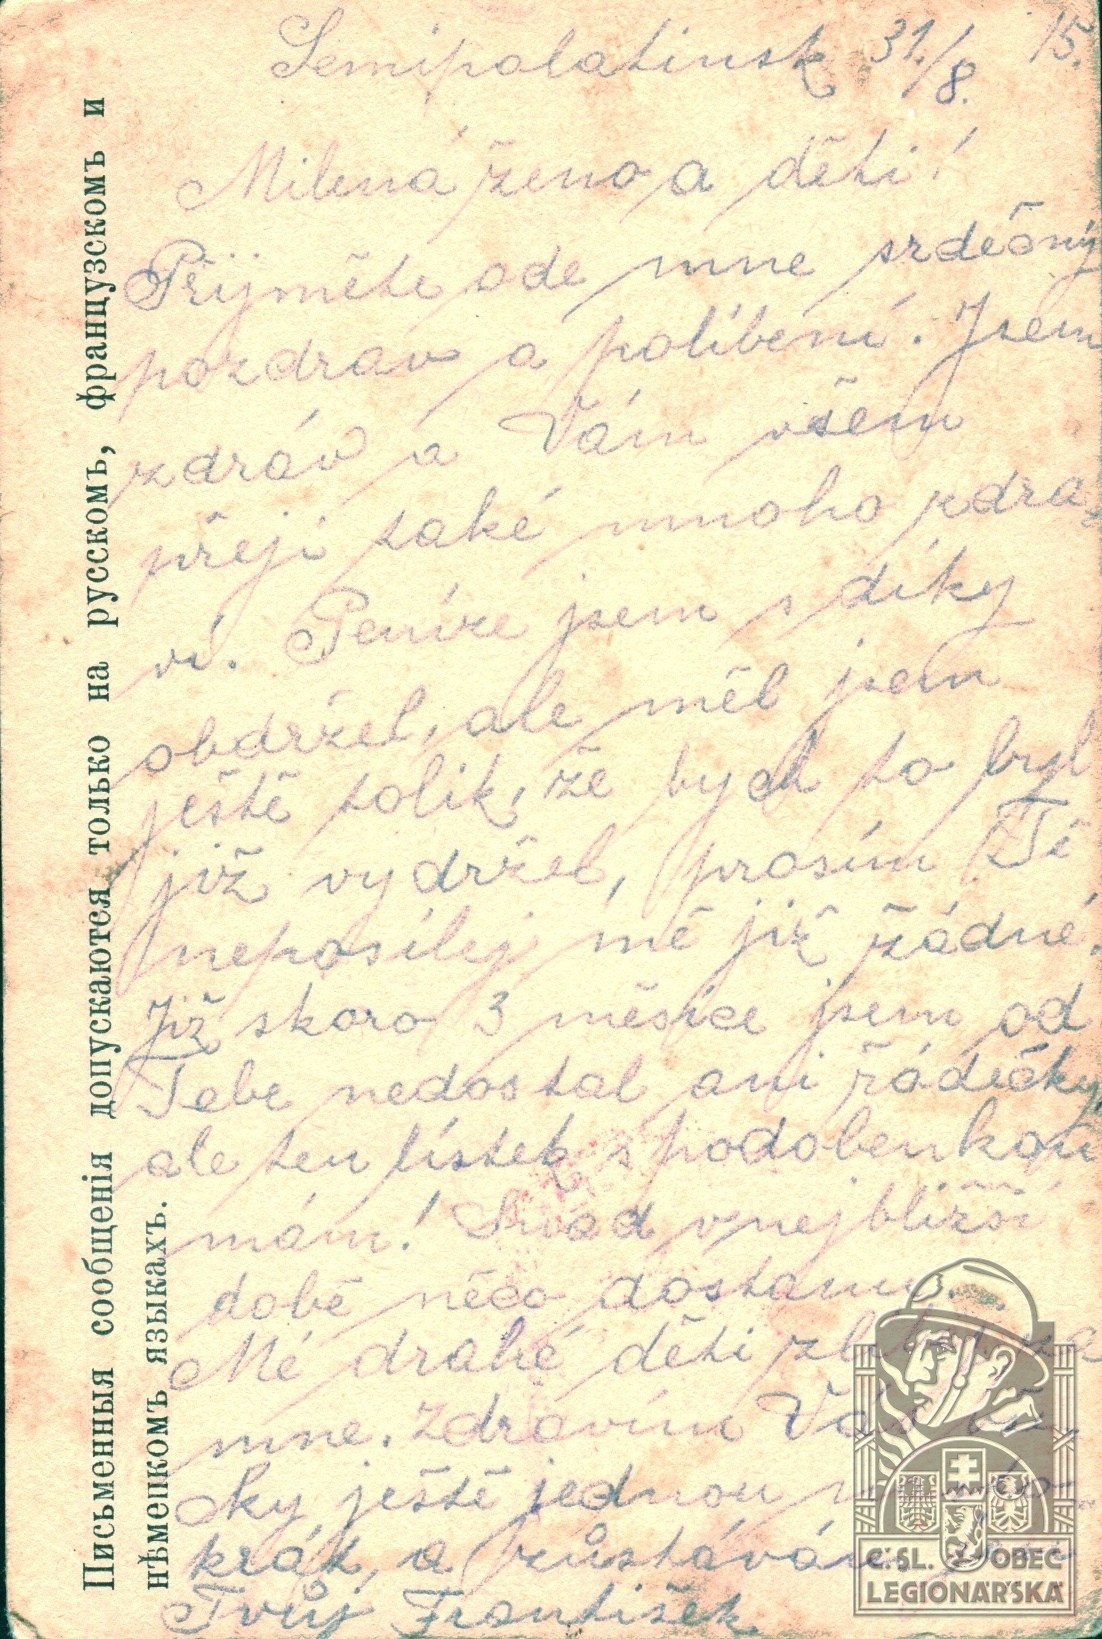 Semipalatinsk 31./8. 15.
Milená ženo a děti!
Přijměte ode mne srdečný
pozdrav a políbení. Jsem
zdráv a Vám všem
přeji také mnoho zdra-
ví. Peníze jsem s díky
obdržel, ale měl jsem
ještě tolik, že bych to byl
již vydržel, prosím Tě
neposílej mě již žádné.
Již skoro 3 měsíce jsem od
Tebe nedostal ani řádečky,
ale ten lístek s podobenkou
mám! Snad v nejbližší
době něco dostanu.
Mé drahé děti za
mne. Zdravím Vás
ještě jednou
krát, a zůstávám
Tvůj František
Письменныя сообщенія допускаются только на русскомъ, французскомъ и
нѣмецкомъ языкахъ.
ČSL. OBEC
LEGIONÁŘSKÁ